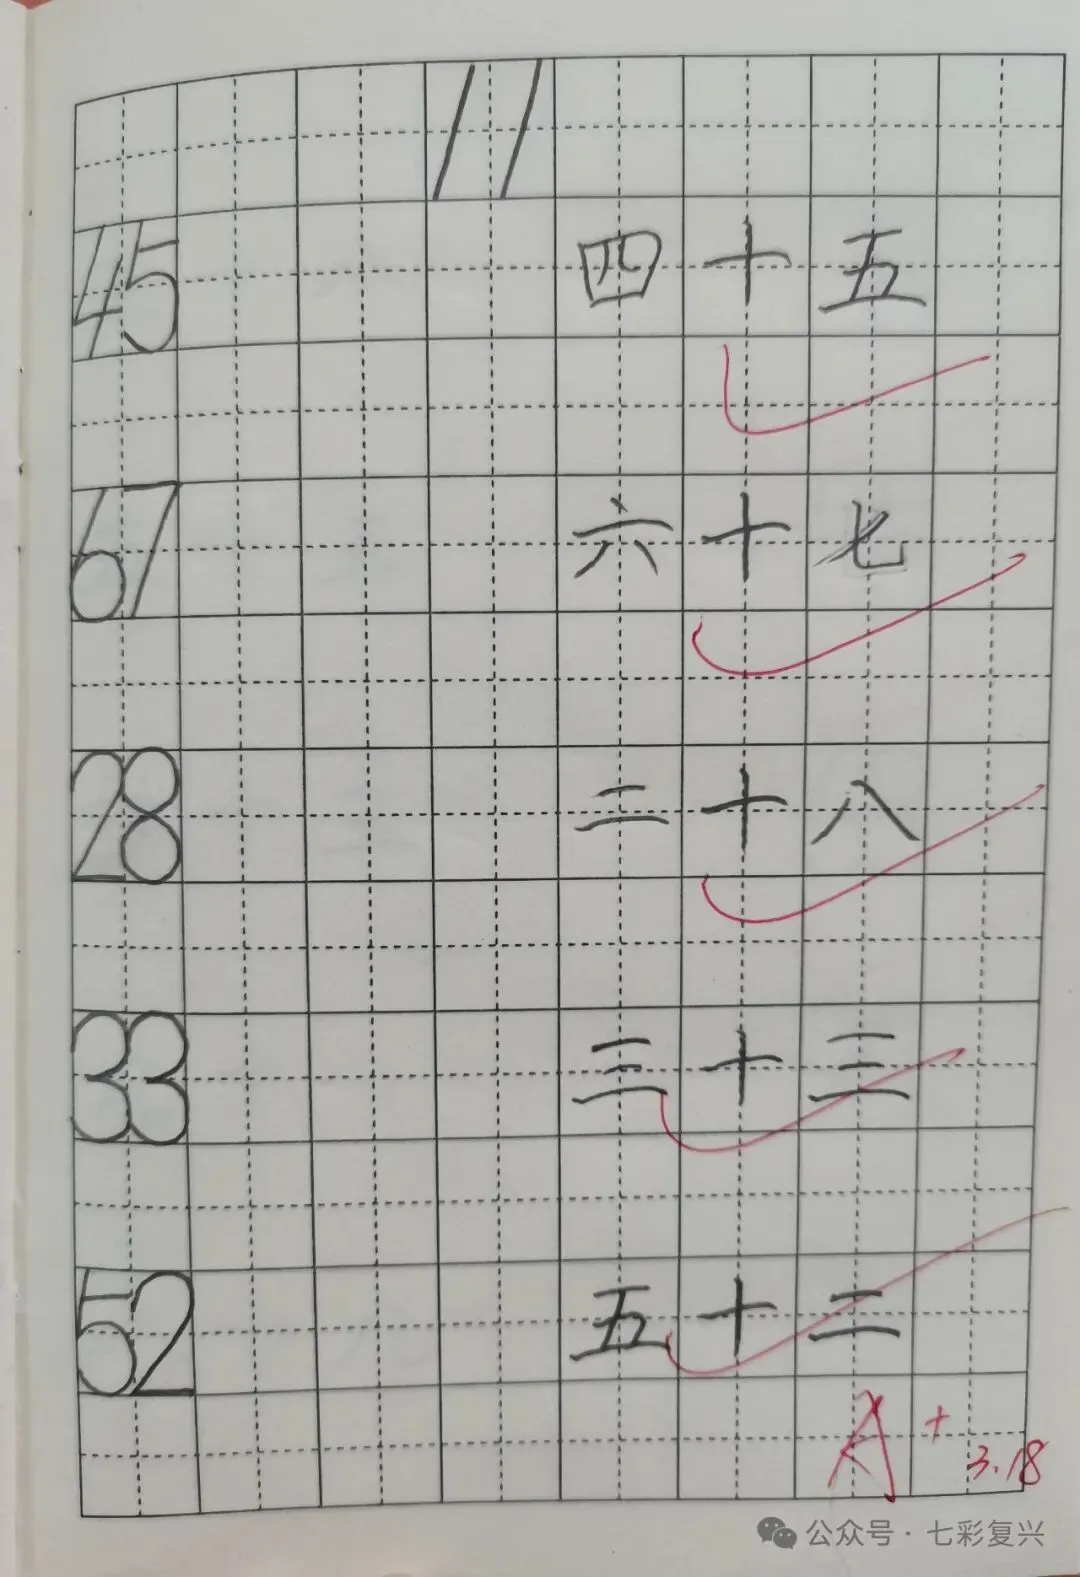 11
45 四十五
67 六十七
28 二十八
33 三十三
52 五十二
A+ 3.18
公众号·七彩复兴